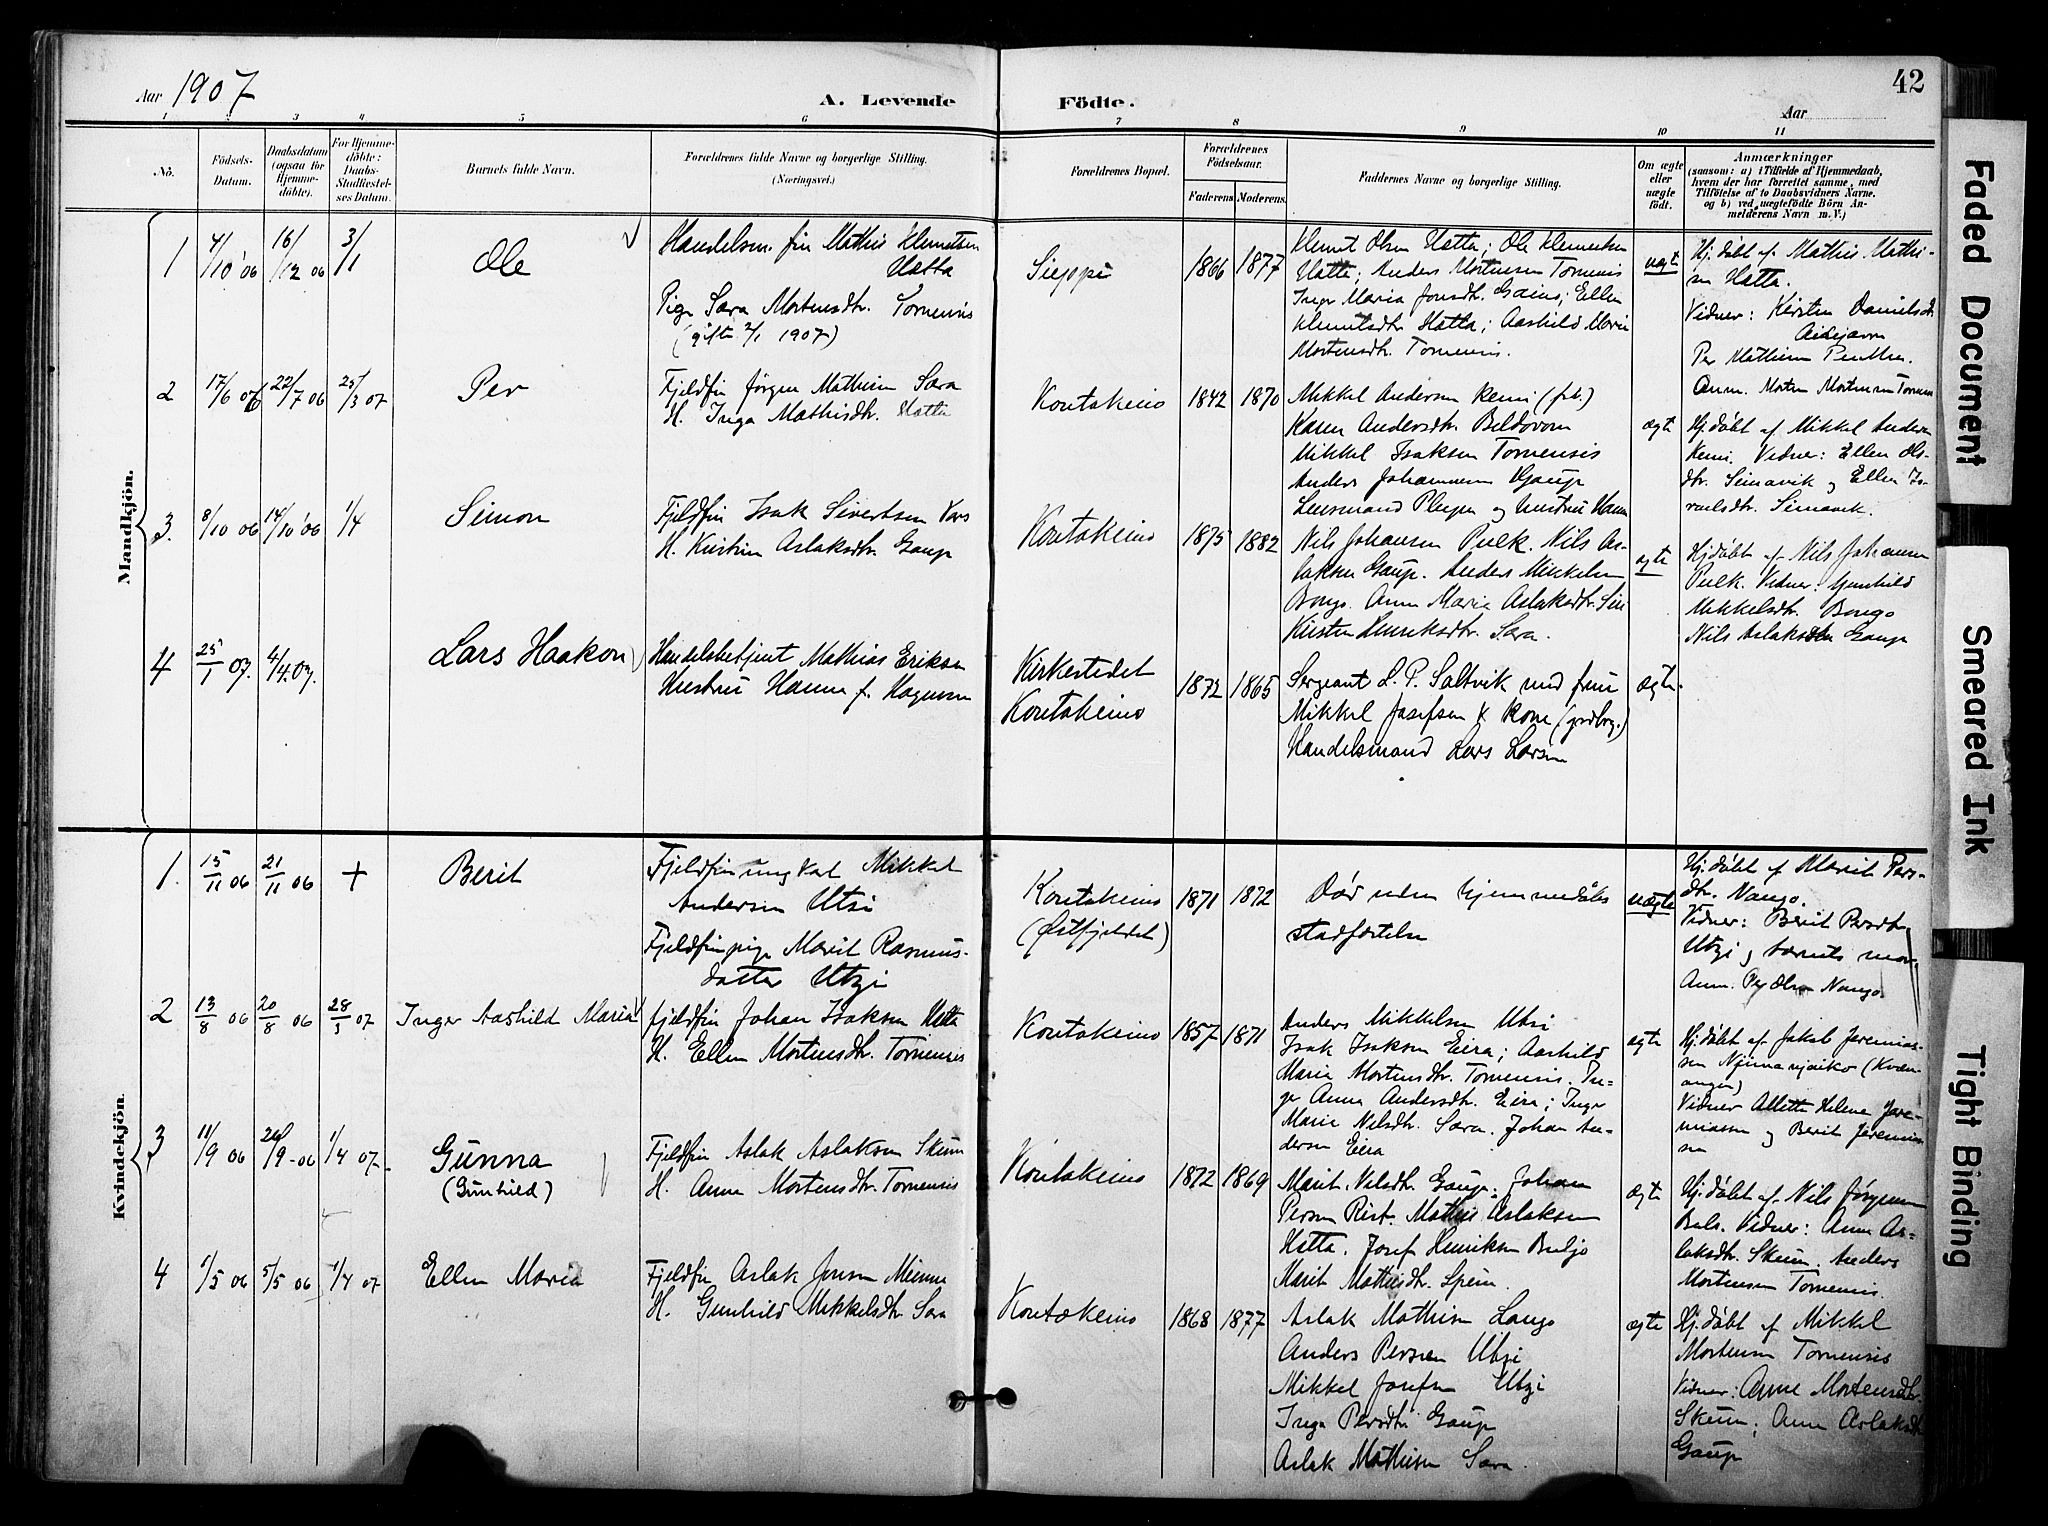 Aar 1907
A. Levende
Födte.
Aar
42
1 2 3 4 5 6 7 8 9 10 11
Nö.
Födsels-
Datum.
Daabsdatum
(ogsaa for
Hjemme-
döbte).
For Hjemme-
döbte:
Daabs-
Stadfæstel-
ses Datum.
Barnets fulde Navn.
Forældrenes fulde Navne og borgerlige Stilling.
(Næringsvei.)
Forældrenes Bopæl.
Forældrenes
Födselsaar.
Faderens
Moderens
Faddernes Navne og borgerlige Stilling.
Om ægte
eller
uægte
födt.
Anmærkninger
(saasom: a) i Tilfælde af Hjemmedaab,
hvem der har forrettet samme, med
Tilföielse af to Daabsvidners Navne.
og b) ved uægtefödte Börn An-
melderens Navn m. V.)
Mandkjön.
1
4/10 06
16/12 06
3/1
Ole
Handelsm. fin Mathis Klemetsen
Hatta
Pige Sara Mortensdtr. Tornensis
(gifte 2/1 1907)
Sieppi
1866
1877
Klemt Olsen Hatta; Ole Klemetsen
Hatta; Anders Mortensen Tornensis
Inger Maria Jonsdtr. Gaino; Ellen
Klemetsdtr Hatta; Aashild Maria
Mortensdtr. Tornensis.
uægt
Hj. døbt af Mathis Mathi-
sen Hatta.
Vidner: Kirsten Danielsdt
Per Mathisen Penttha.
Anm. Morten Mortensen Tornen
2
17/6 06
22/7 06
25/3 07
Per
Fjeldfin Jørgen Mathisen Sara
H. Inga Mathisdtr. Hatta
Koutokeino
1842
1870
Mikkel Andersen Kemi
Karen Andersdtr. Beldovom
Mikkel Isaksen Tornensis
Anders Johannesen Gaup
Lensmand Pleym og hustru Hanna
ægte
Hj. døbt af Mikkel Anders
Kemi. Vidner: Ellen Ols-
dtr. Simavik og Ellen Is-
raelsdtr. Simavik.
3.
8/10 06
14/10 06
1/4
Simon
Fjeldfin Isak Sivertsen Vars
H. Kirstin Aslaksdtr. Gaup
Koutokeino
1875
1882
Nils Johansen Pulk. Nils As-
laksen Gaup. Anders Mikkelsen
Bongo. Anne Maria Aslaksdtr. Siri
Kirsten Henriksdtr. Sara.
ægte
Hj døbt af Nils Johansen
Pulk. Vidner: Gunhild
Mikkelsdtr. Bongo
Nils Aslaksen Gaup
4
25/1 07.
4/4.07.
Lars Haakon
Handelsbetjent Mathias Eriksen
Hustru Hanna f. Hagensen
Kirkestedet
Koutokeino
1872
1865
Sergeant L. P. Saltvik med frue
Mikkel Josefsen & kone (gjordbrg.)
Handelsmand Lars Larsen
ægte.
Kvindekjön.
1.
15/11 06
21/11 06
+
Berit
Fjeldfin ungkarl Mikkel
Andersen Utsi
Fjeldfin pige Marit Rasmus-
datter Utzi
Koutokeino
(Østfjeldet)
1871
1872
Død uden hjemmedåbs
stadfæstelse
uægte
Hj. døbt af Marit Pers-
dtr. Nango.
Vidner: Berit Persdtr
Utzi og barnets mor
Anm. Per Olsen Nango.
2
13/8 06
20/8 06
28/3 07
Inger Aashild Maria
fjeldfin Johan Isaksen Hetta
H. Ellen Mortensdtr. Tornensis
Koutokeino
1857
1871
Anders Mikkelsen Utsi
Isak Isaksen Eira; Aashild
Maria Mortensdtr. Tornensis. In-
ger Anna Andersdtr. Eira; Inger
Maria Nilsdtr. Sara. Johan An-
dersen Eira
ægte
Hj. døbt af Jakob Jeremias-
sen Njimarjoiko (Kvæn-
angen)
Vidner Allette Helene Jere-
miassen og Berit Jeremias
sen
3
11/9 06
/9-06
1/4 07-
Gunna
(Gunhild)
Fjeldfin Aslak Aslaksen Skum
H. Anna Mortensdtr. Tornensis
Koutokeino
1872
1869
Marit Nilsdtr. Gaup; Johan
Persen Rist. Mathis Aslaksen
Hatta. Josef Henriksen Buljo
Marit Mathisdtr. Spein.
ægte
Hj. døbt af Nils Jørgensen
Bals. Vidner: Anna As-
laksdtr. Skum. Anders
Mortensen Tornensis.
4
1/5 06
5/5 06
1/4 07
Ellen Maria
Fjeldfin Aslak Jonsen Mienna
H. Gunhild Mikkelsdtr Sara
Koutokeino
1868
1877
Aslak Mathisen Lango
Anders Persen Utzi
Mikkel Josefsen Utzi
Inga Persdtr Gaup
Aslak Mathisen Sara.
ægte
Hj. døbt af Mikkel
Mortensen Tornensis
Vidner: Anne Mortensdtr.
Skum; Anna Aslaksdt
Gaup
Faded Document
Smeared Ink
Tight Binding